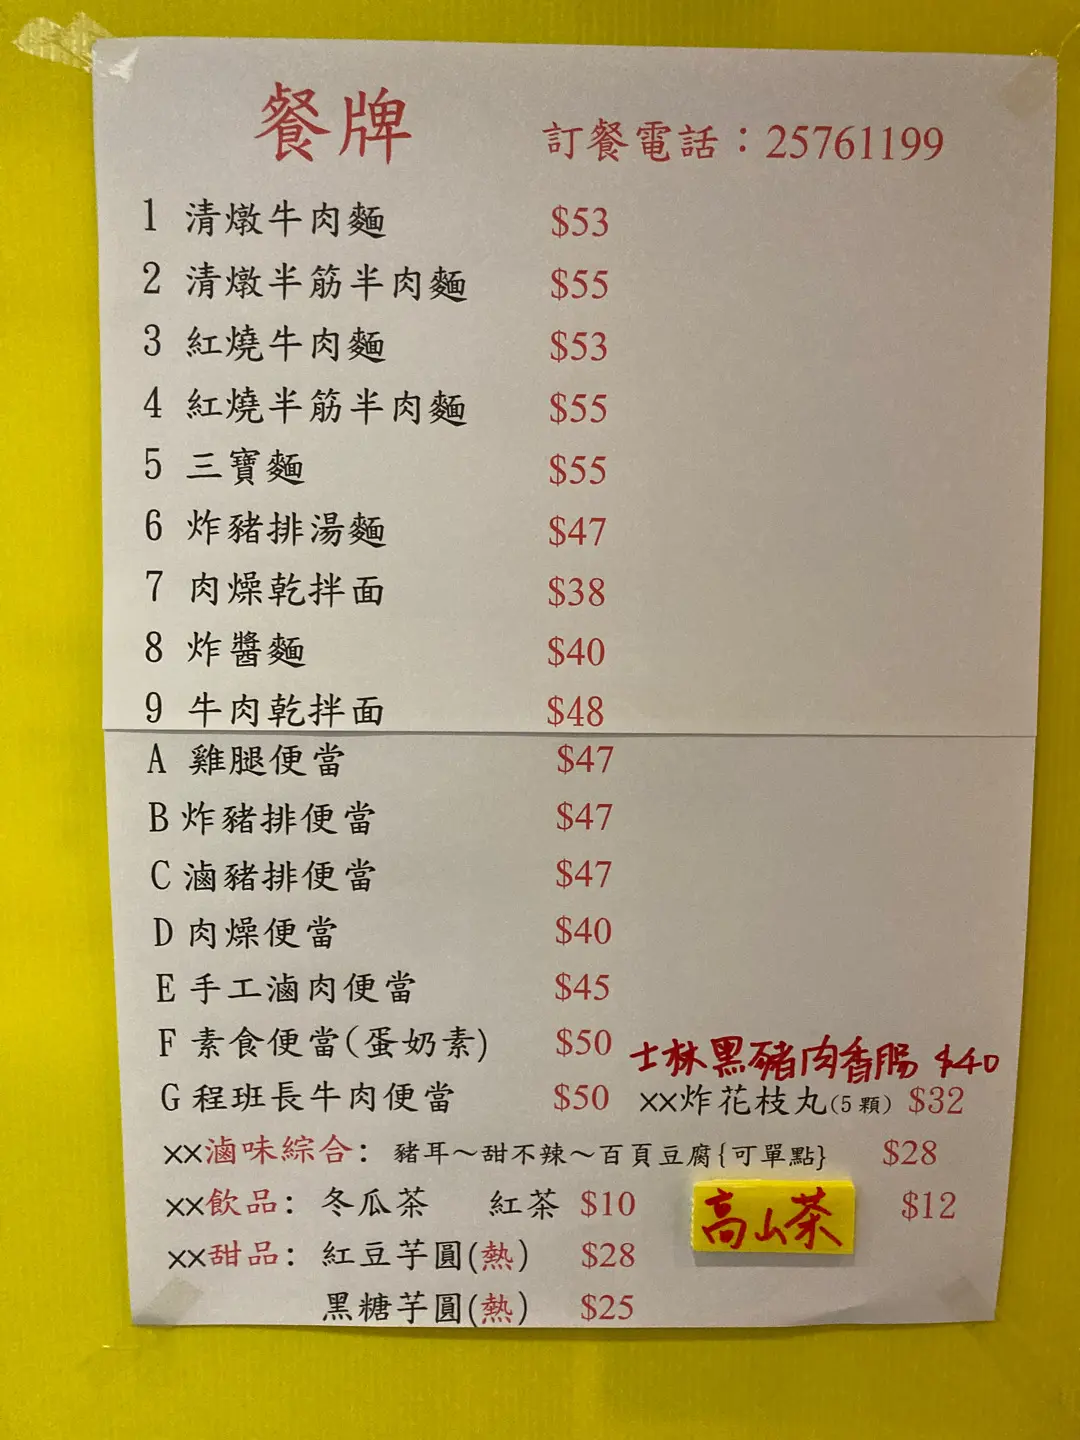 餐牌 訂餐電話：25761199
1 清燉牛肉麵 $53
2 清燉半筋半肉麵 $55
3 紅燒牛肉麵 $53
4 紅燒半筋半肉麵 $55
5 三寶麵 $55
6 炸豬排湯麵 $47
7 肉燥乾拌面 $38
8 炸醬麵 $40
9 牛肉乾拌面 $48
A 雞腿便當 $47
B 炸豬排便當 $47
C 滷豬排便當 $47
D 肉燥便當 $40
E 手工滷肉便當 $45
F 素食便當(蛋奶素) $50 士林黑豬肉香腸 $40
G 程班長牛肉便當 $50 ××炸花枝丸(5 顆) $32
××滷味綜合：豬耳～甜不辣～百頁豆腐{可單點} $28
××飲品：冬瓜茶 紅茶 $10 高山茶 $12
××甜品：紅豆芋圓(熱) $28
黑糖芋圓(熱) $25